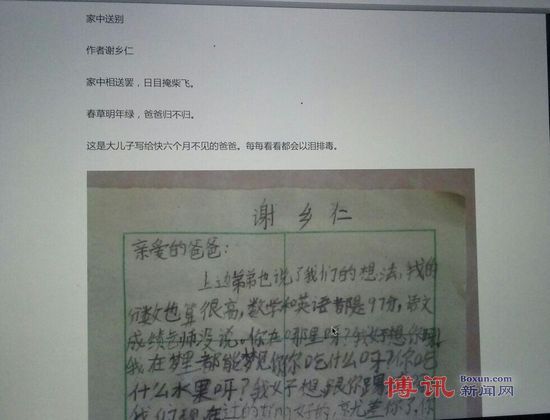 家中送别
作者谢乡仁
家中相送罢，日目掩柴飞。
春草明年绿，爸爸归不归。
这是大儿子写给快六个月不见的爸爸。每每看看都会以泪排毒。
谢乡仁
亲爱的爸爸：
上边弟弟也说了我们的想法，我的
分数也算很高，数学和英语都是97分，语文
成绩老师没说。你在哪里呀？我好想你呀
我在梦里都能梦见你你吃什么呀？你吃
什么水果呀？我好想跟你
我们现在过的
博讯 Boxun.com
新闻网